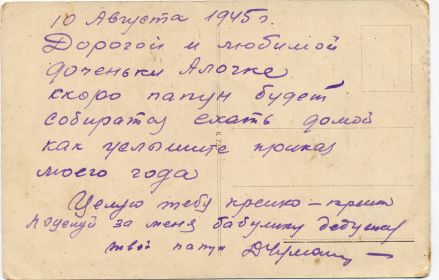 10 Августа 1945 г.
Дорогой и любимой
доченьки Алочке
скоро папун будет
собиратся ехать домой
как услышите приказ
моего года
Целую тебя крепко-крепко
Поцелуй за меня бабулику дедушку
твой папун